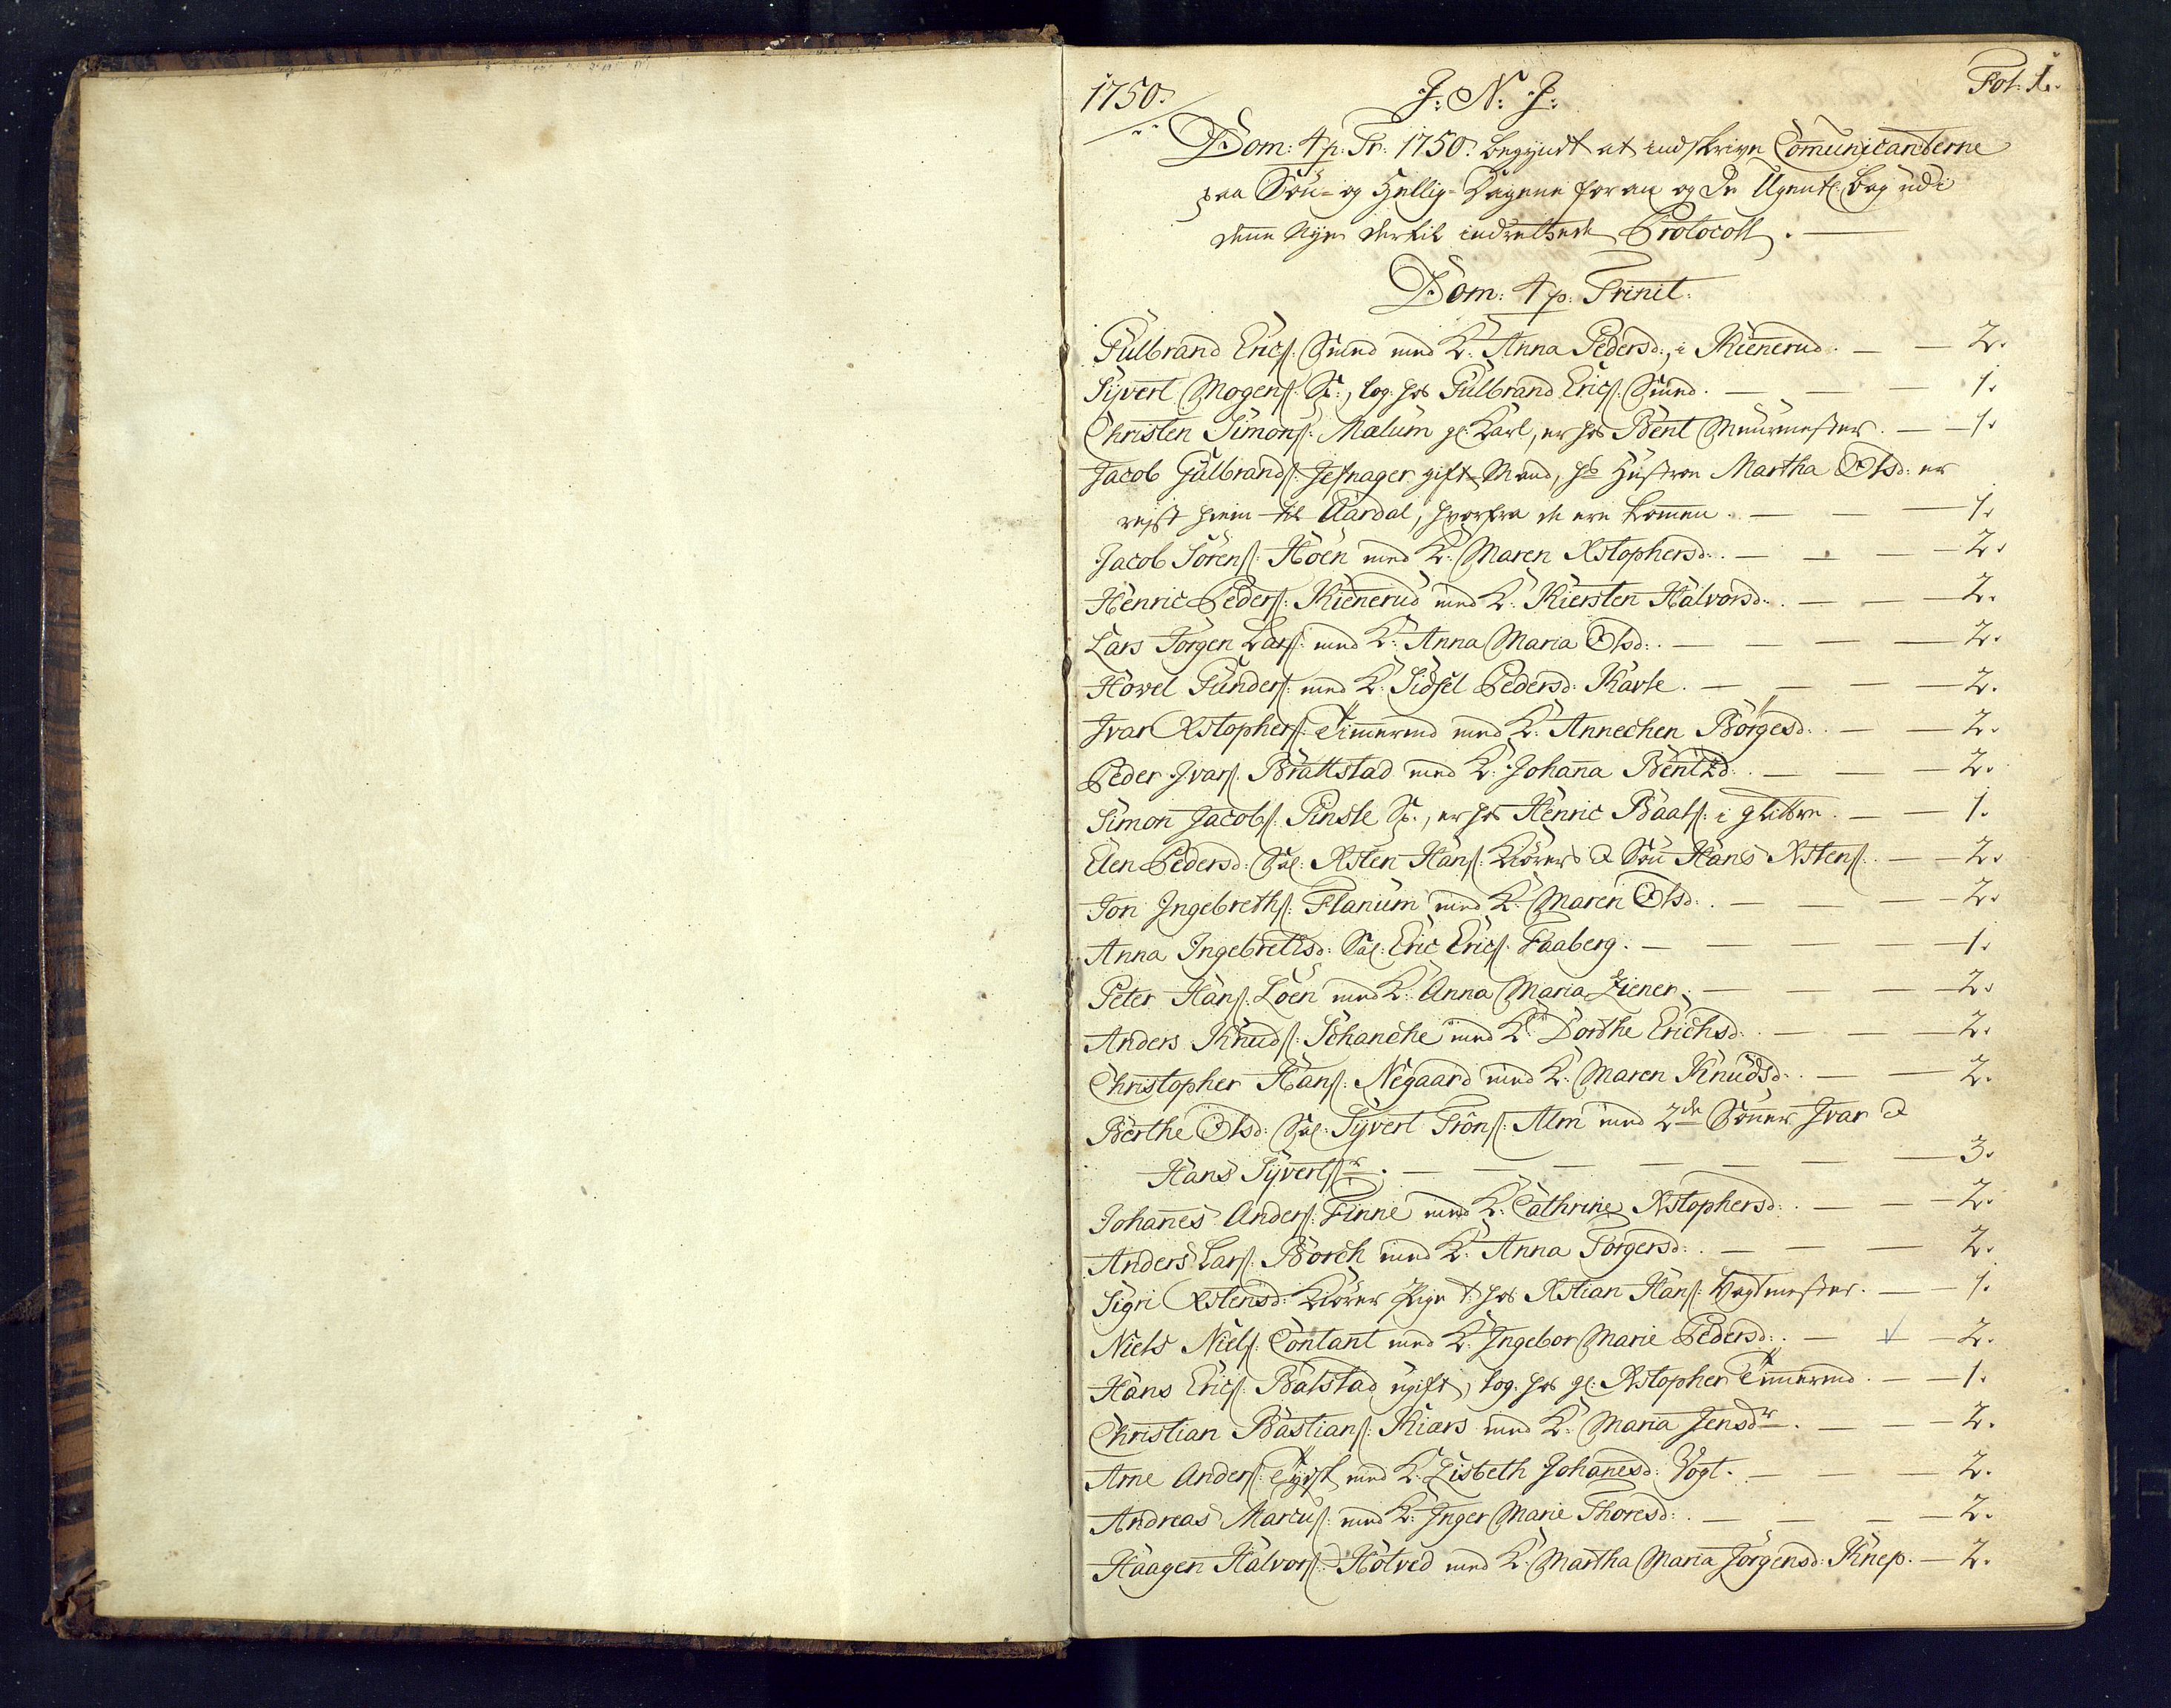 1750.
J: N: J:
Fol: 1.
Dom: 4 p. Tr. 1750. begyndt at indskrive Comunicanterne
paa Søn- og Hellig-Dagene foran og de Ugentl. bag udi
denne Nye dertil indrettede Protocoll.
Dom: 4 p. Trinit:
Gulbrand Erics: Smed med K: Anna Pedersd:, i Kienerud. — — 2.
Syvert Mogens: S:, log. hos Gulbrand Erics: Smed. — — — 1.
Christen Simons: Mælum gl: Karl, er hos Bent Muurmester. — — 1.
Jacob Gulbrands: Jefnager gift Mand, hs Hustroe Martha Olsd: er
rejst hiem til Aardal, hvorfra de ere komen. — — — 1.
Jacob Sørens: Hoen med K: Maren Xstophersd:. — — — 2.
Henric Peders: Kienerud med K: Kiersten Halvorsd:. — — — 2.
Lars Jørgen Lars: med K: Anna Maria Olsd:. — — — — 2.
Hovel Gunders: med K: Sidsel Pedersd: Kavle. — — — — 2.
Ivar Xstophers: Timermd med K: Annechen Børgesd:. — — 2.
Peder Ivars: Brattstad med K: Johana Bentzd:. — — — 2.
Simon Jacobs: Pinsle S:, er hos Henric Baals: i Glitre. — — 1.
Elen Pedersd: Sal: Xsten Hans: Kiørers & Søn Hans Xstens:. — — 2.
Jon Ingebreths: Flanum med K: Maren Olsd:. — — — — 2.
Anna Ingebretsd: Sal: Eric Erics: Faaberg. — — — — — 1.
Peter Hans: Loen med K: Anna Maria Ziener. — — — — 2.
Anders Knuds: Schanche med K: Dorthe Erichsd:. — — — 2.
Christopher Hans: Negaard med K: Maren Knudsd:. — — 2.
Berthe Olsd: Sal: Syvert Tröns: Alm med 2de Sønner Ivar &
Hans Syvertsr. — — — — — — — 3.
Johanes Anders: Finne med K: Cathrine Xstophersd:. — — — 2.
Anders Lars: Borch med K: Anna Torgersd:. — — — 2.
Sigri Xstensd: Kiører Pige t: hos Xstian Hans: Vagtmester. — — 1.
Niels Niels: Contant med K: Ingebor Marie Pedersd:. — — 2.
Hans Erics: Balstad ugift, log. hos gl: Xstopher Timermd. — — 1.
Christian Bastians: Kiærs med K: Maria Jensdr. — — — 2.
Arne Anders: Tydsk med K: Lisbeth Johanesd: Vogt. — — 2.
Andreas Marcus: med K: Inger Marie Thoresd:. — — — — 2.
Haagen Halvors: Hotved med K: Martha Maria Jørgensd: Knep. — 2.